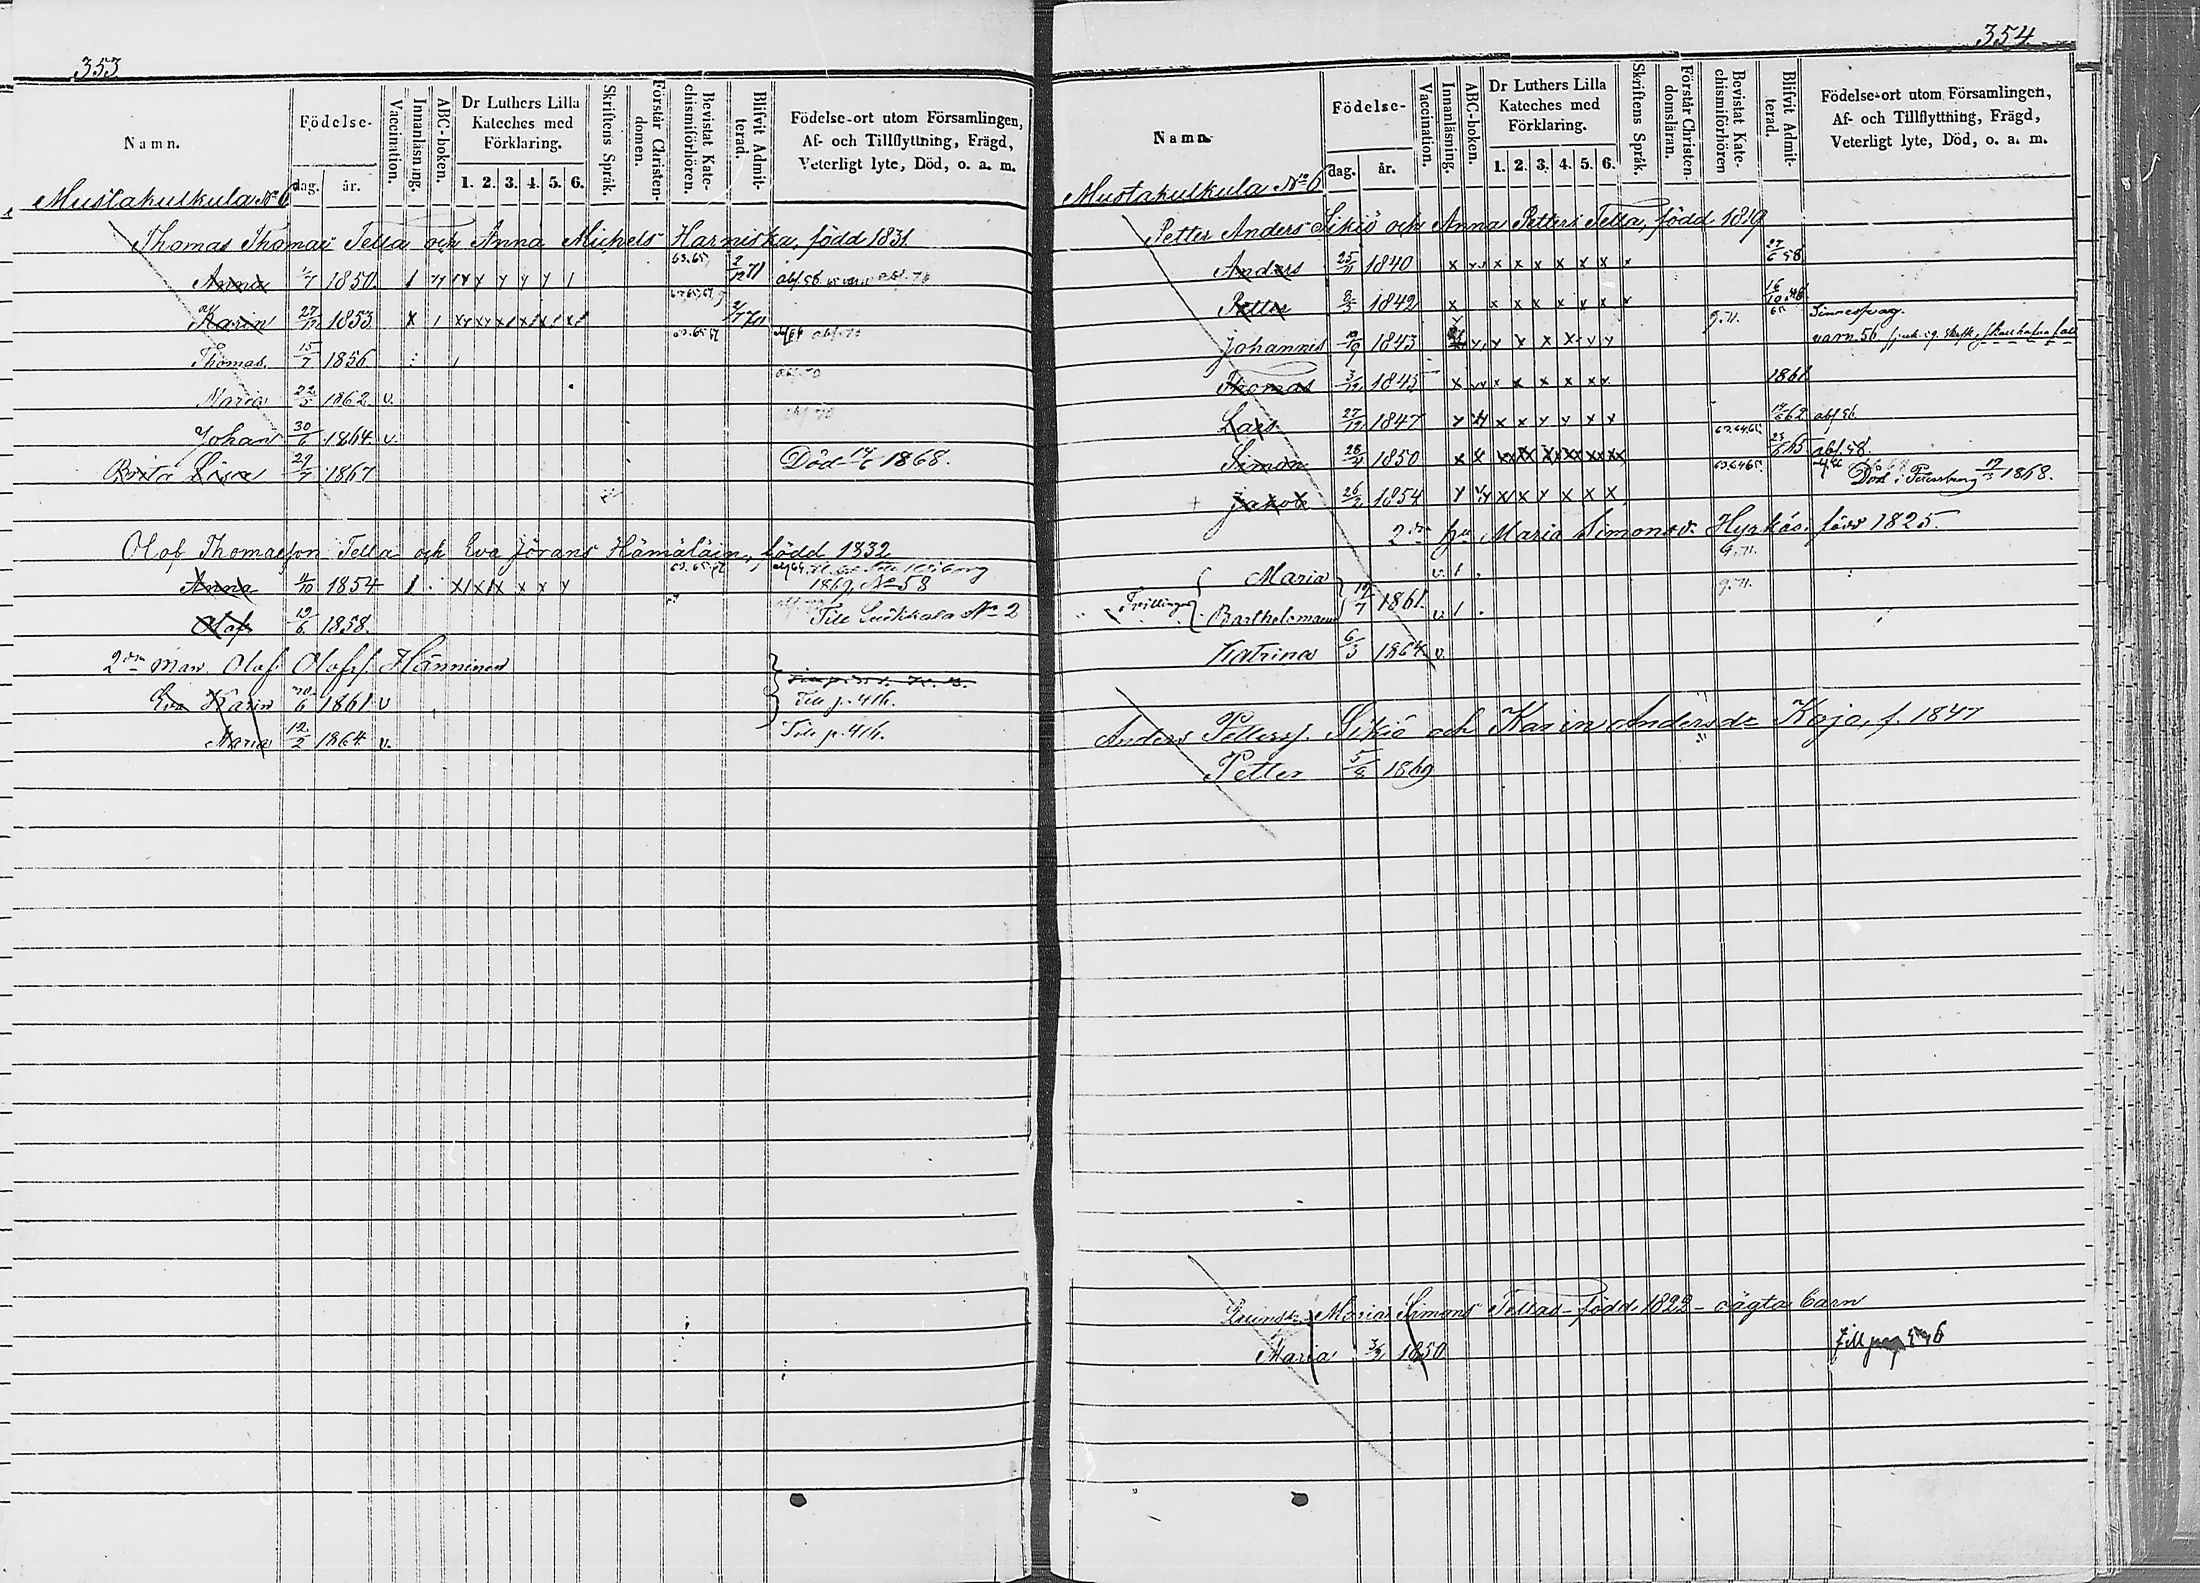 353
Namn.
Födelse-
dag. år.
Vaccination.
Innanläsning.
ABC-boken.
Dr Luthers Lilla
Kateches med
Förklaring.
1. 2. 3. 4. 5. 6.
Skriftens Språk.
Förstår Christen-
domen.
Bevistat Kate-
chismiförhören.
Blifvit Admit-
terad.
Födelse-ort utom Församlingen,
Af- och Tillflyttning, Frägd,
Veterligt lyte, Död, o. a. m.
Mustakulkula No 6
Thomas Thomas Tella och Anna Michels Harniska, född 1831
Anna 1850
Karin 27/12 1853
Thomas 15/7 1856
Maria 22/5 1862 v.
Johan 30/6 1864 v.
Brita Lisa 29/7 1867 Död 14/6 1868.
Olof Thomasson Tella och Eva Jörans Hämäläin, född 1832
Anna 1854 1869, No 58
Olof 19/6 1858. Till No 2
2dra man. Olof Olofs. Hänninen
Eva Karin 1861 v Till p. 416.
Maria 12/2 1864 v. Till p. 416.
354
Namn.
Födelse-
dag. år.
Vaccination.
Innanläsning.
ABC-boken.
Dr Luthers Lilla
Kateches med
Förklaring.
1. 2. 3. 4. 5. 6.
Skriftens Språk.
Förstår Christen-
domsläran.
Bevistat Kate-
chismiförhören
Blifvit Admit-
terad.
Födelse-ort utom Församlingen,
Af- och Tillflyttning, Frägd,
Veterligt lyte, Död, o. a. m.
Mustakulkula No 6
Petter Anders Sikiö och Anna Petters Tella, född 1819
Anders 25/11 1840 27/6 58
Petter 1842 16/10
Johannis 1843 g. 71. Sinnessvag.
Thomas 3/12 1845 1861
Lars 27/12 1847 62
Simon 28/4 1850 65 abs. 58.
Jakob 26/2 1854 Död i Petersburg 1868.
2dra hu Maria Simonsd. Hyrkäs. född 1825.
Trillingar Maria 19/7 1861. v.
Bartholomæus v
Katrina 6/3 1864 v.
Anders Petterss. Sikiö och Karin Andersdr Kaja, f. 1847
Petter 5/8 1869
Maria Simons Tellas född 1822 oägta barn
Maria 1850 till pag 5